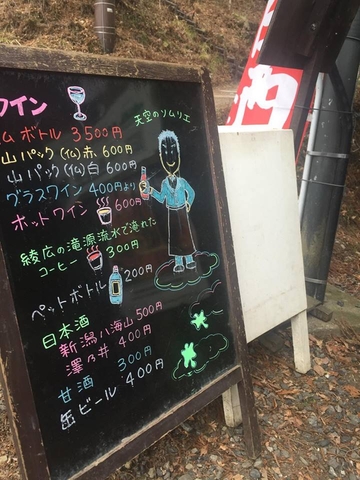 ワイン
ムボトル 3,500円
山パック(仏)赤 600円
山パック(仏)白 600円
グラスワイン 400円より
ホットワイン 600円
綾広の滝源流水で淹れた
コーヒー 300円
ペットボトル 200円
日本酒
新潟八海山 500円
澤乃井 400円
甘酒 300円
缶ビール 400円
天空のソムリエ